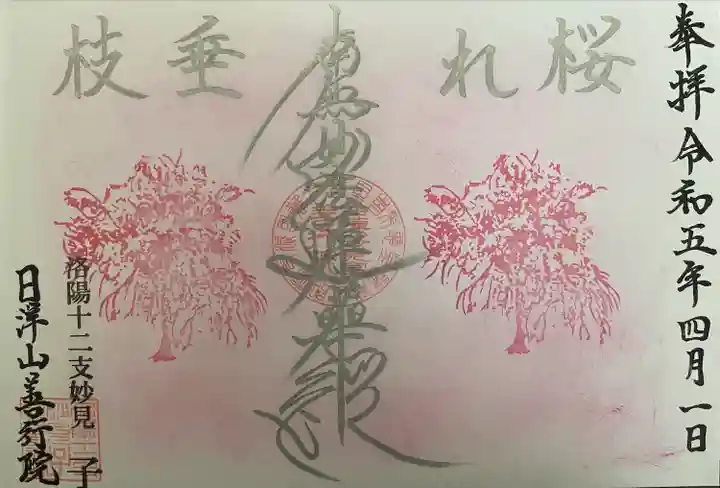 奉拝 令和五年四月一日
枝垂れ桜
南無妙法蓮華経
洛陽十二支妙見 子
日洋山善行院